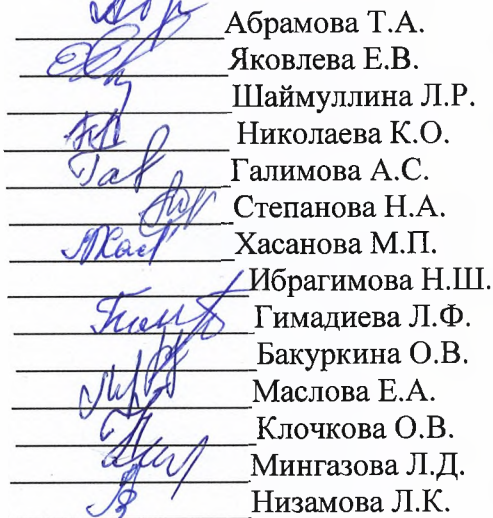 Абрамова Т.А.
Яковлева Е.В.
Шаймуллина Л.Р.
Николаева К.О.
Галимова А.С.
Степанова Н.А.
Хасанова М.П.
Ибрагимова Н.Ш.
Гимадиева Л.Ф.
Бакуркина О.В.
Маслова Е.А.
Клочкова О.В.
Мингазова Л.Д.
Низамова Л.К.